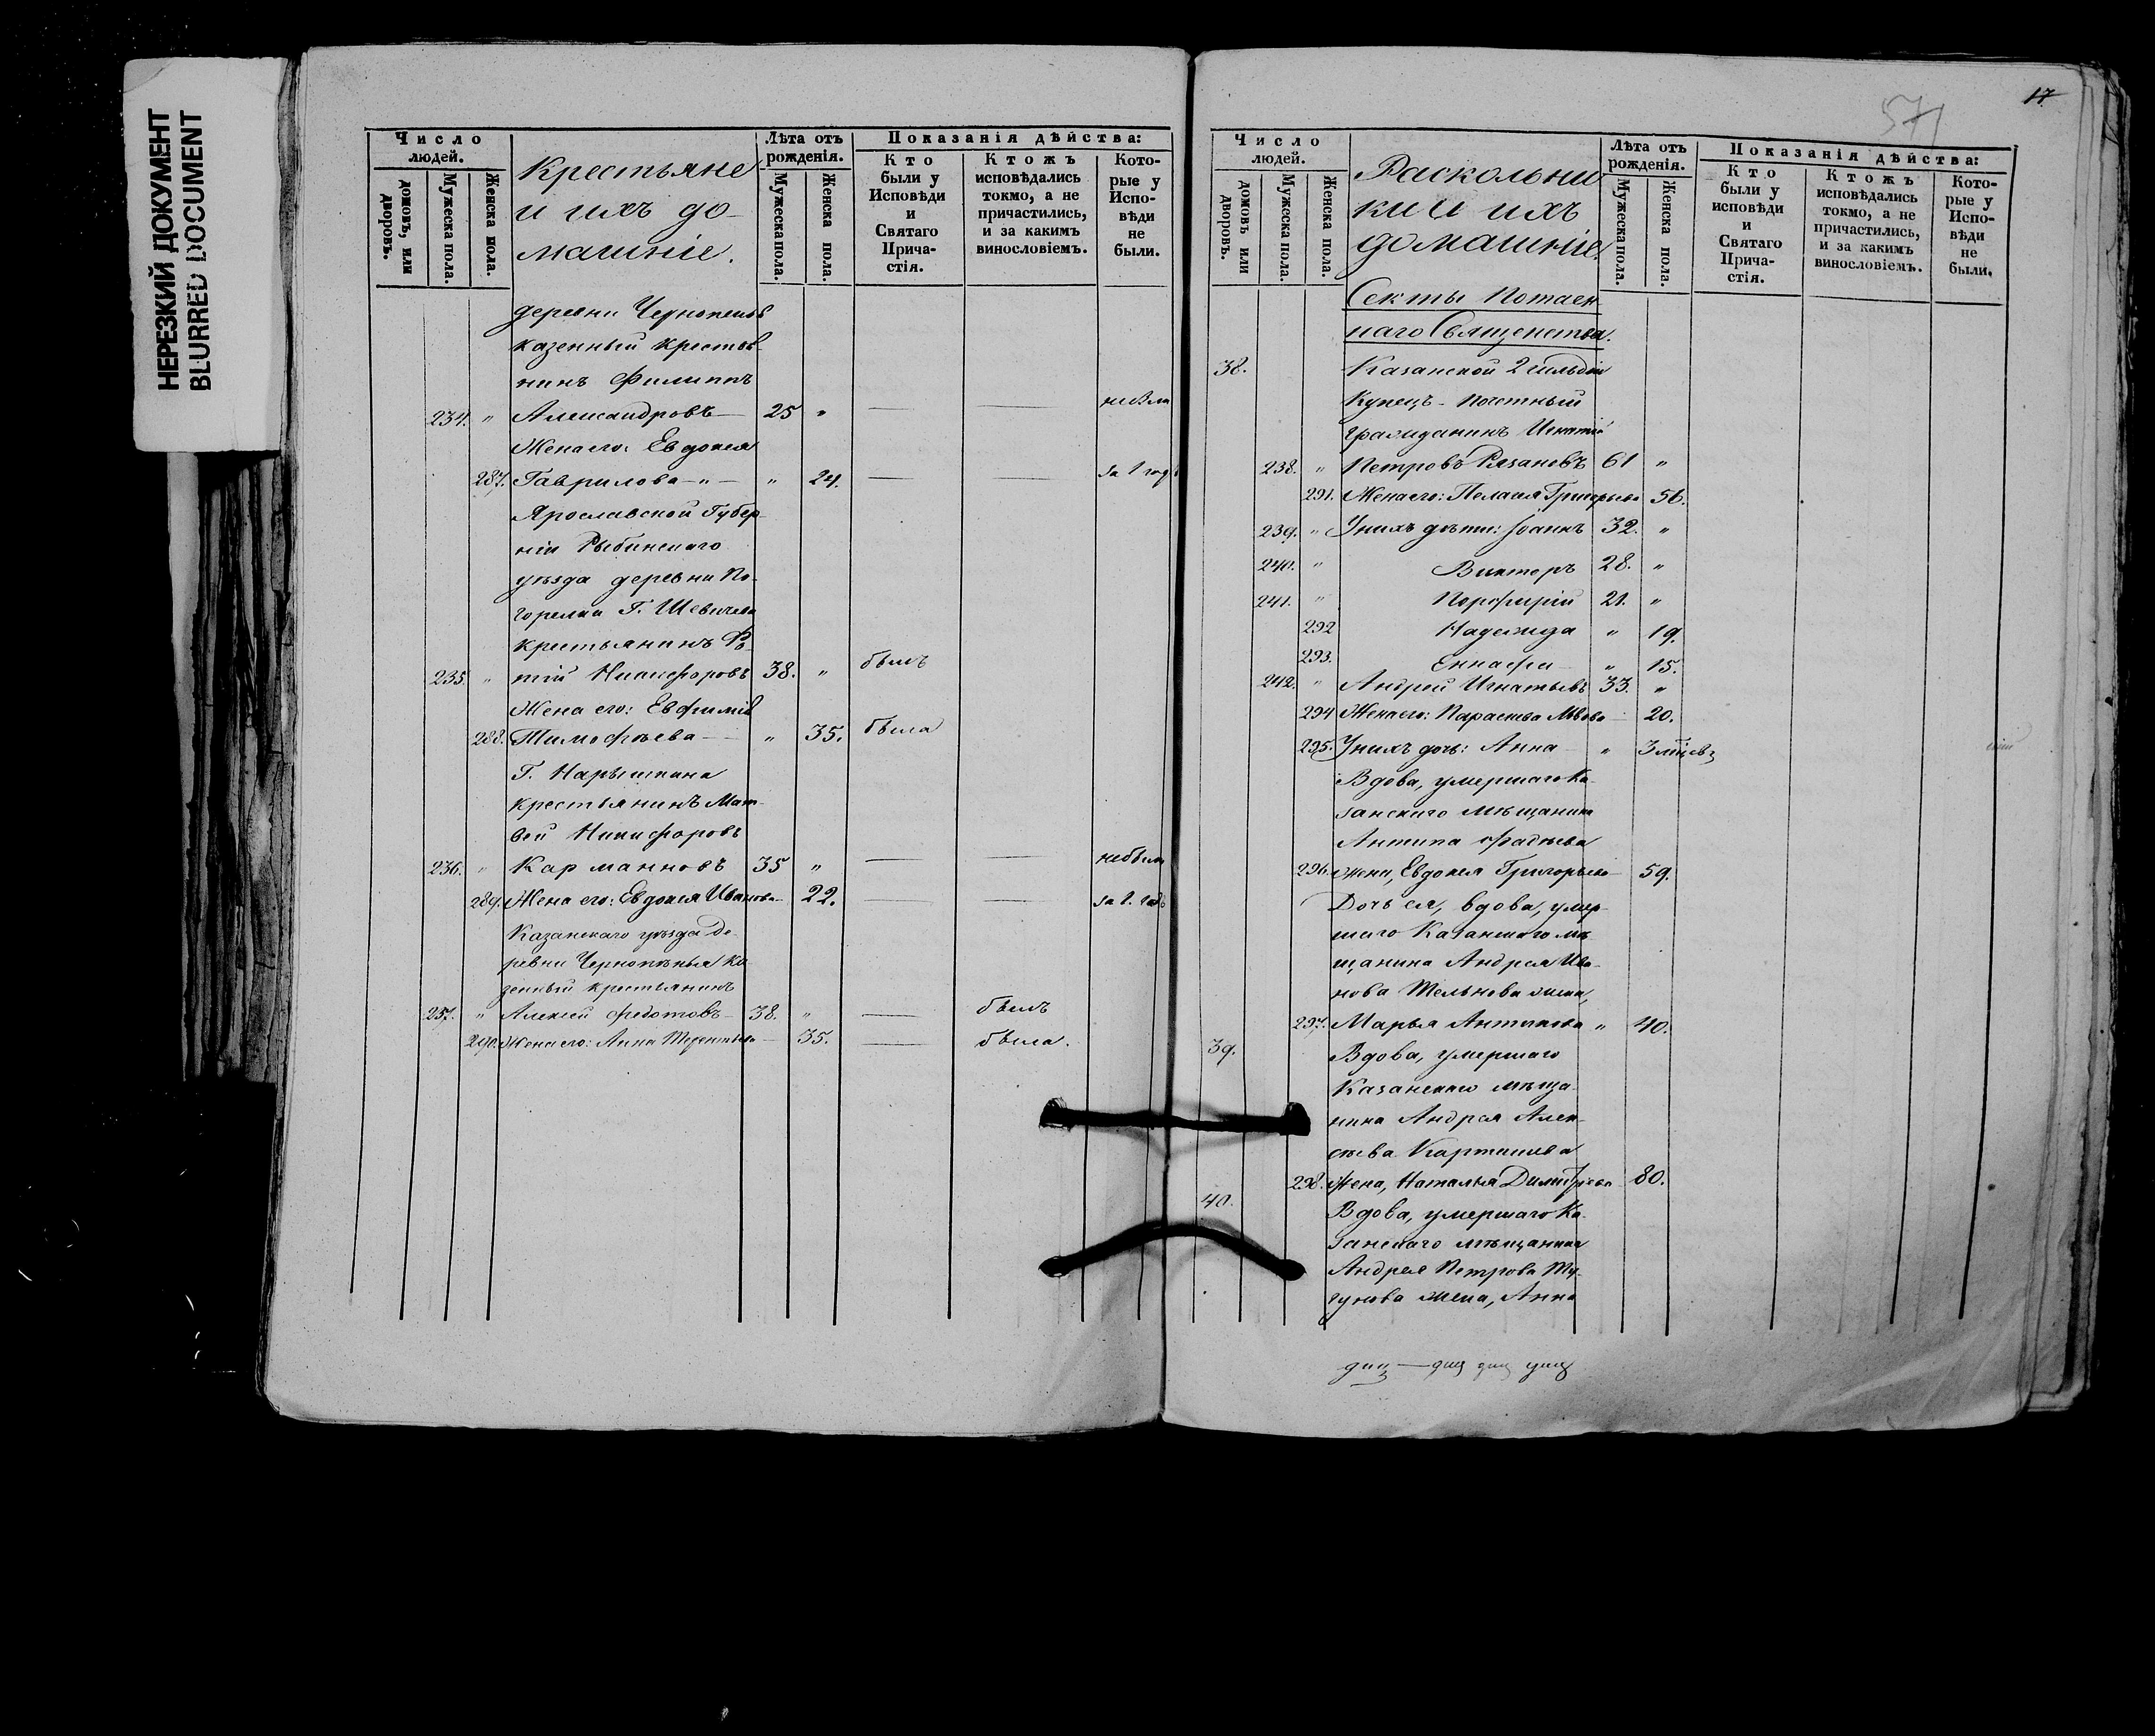 НЕРЕЗКИЙ ДОКУМЕНТ
BLURRED DOCUMENT
Число людей.
домовъ, или дворовъ.
Мужеска пола.
Женска пола.
Крестьяне
и ихъ до-
машніе.
Лѣта отъ рожденія.
Мужеска пола.
Женска пола.
Показанія дѣйства:
Кто были у Исповѣди и Святаго Прича-стія.
Ктожъ исповѣдались токмо, а не причастились, и за какимъ винословіемъ.
Кото-рые у Испо-вѣди не были.
деревни
казенный крестья-
нинъ Филиппъ
234. " Александровъ — 25 " — —
Жена его: Евдокея
287. Гаврилова — " — " 24. — — за 1 годъ
Ярославской Губер-
ніи Рыбинскаго
уѣзда деревни По-
горелки Г. Шевичева
крестьянинъ Фо-
235. " тій Никифоровъ 38. " былъ
Жена его: Евфимія
288. Тимофѣева — " 35. была
Г. Нарышкина
крестьянинъ Мат-
вей Никифоровъ
236. " Кар манновъ 35 " — — небыли
289. Жена его: Евдокея Иванова — 22. — — за 2. годъ
Казанскаго уѣзда де-
ревни ка-
зенный крестьянинъ
237. " Алексей Федотовъ — 38. " — былъ
290. Жена его: Анна Терентьева — 35. — была.
17
571
Число людей.
домовъ или дворовъ.
Мужеска пола.
Женска пола.
Раскольни
ки и ихъ
домашніе.
Лѣта отъ рожденія.
Мужеска пола.
Женска пола.
Показанія дѣйства:
Кто были у исповѣди и Святаго Прича-стія.
Ктожъ исповѣдались токмо, а не причастились, и за какимъ винословіемъ.
Кото-рые у Испо-вѣди не были.
Секты Потаен
наго Священства.
38. Казанской 2 гильдіи
Купецъ - Почетный
гражданинъ Игнатій
238. " Петровъ Рязановъ 61 "
291. Жена его: Пелагея Григорьева 56.
239. " У нихъ дѣти: Іоаннъ 32. "
240. " Викторъ 28. "
241. " Порфирій 21. "
292 Надежда " 19.
293. Еннафа — " 15.
242. " Андрей Игнатьевъ 33. "
294 Жена его: Параскева Львова — 20.
295. У нихъ дочь: Анна — " 3 мѣсяцевъ
Вдова, умершаго Ка-
занскаго мѣщанина
Антипа Фадѣева
296. жена, Евдокея Григорьева — 59.
Дочь ея, вдова, умер-
шаго Казанскаго мѣ-
щанина Андрея Ива-
нова Тельнова жена,
297. Марья Антипова " 40.
39. Вдова, умершаго
Казанскаго мѣща-
нина Андрея Алек-
сѣева Карташева
298. Жена, Наталья Димитріева 80.
40. Вдова, умершаго Ка-
занскаго мѣщанина
Андрея Петрова Ту-
гунова жена, Анна